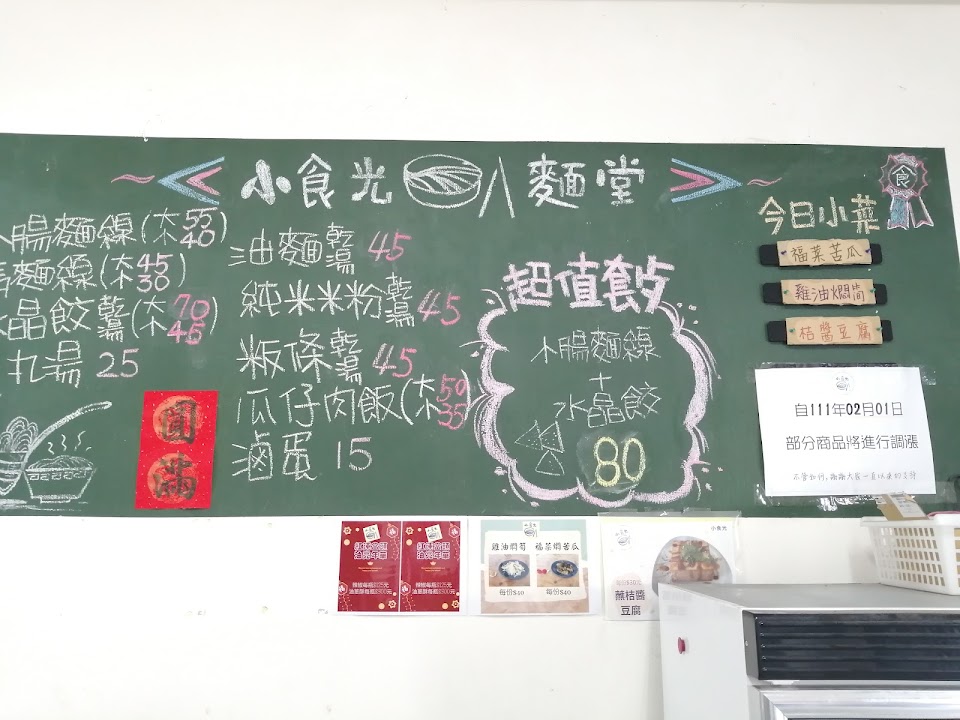 小食光 麵堂
小腸麵線(大55 小40)
麵線(大45 小30)
水晶餃 乾 湯(大70 小45)
丸湯 25
油麵 乾 湯 45
純米米粉 乾 湯 45
粄條 乾 湯 45
瓜仔肉飯(大50 小35)
滷蛋 15
圓滿
超值套餐
小腸麵線
+
水晶餃
80
食
今日小菜
福菜苦瓜
雞油燜筍
桔醬豆腐
自111年02月01日
部分商品將進行調漲
雞油燜筍
每份$40
福菜燜苦瓜
每份$40
小食光
蔴桔醬
豆腐